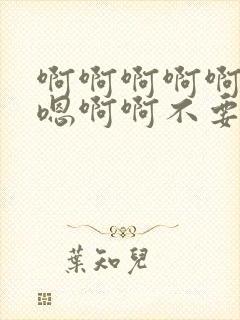 啊啊啊啊啊
嗯啊啊不要
葉知兒